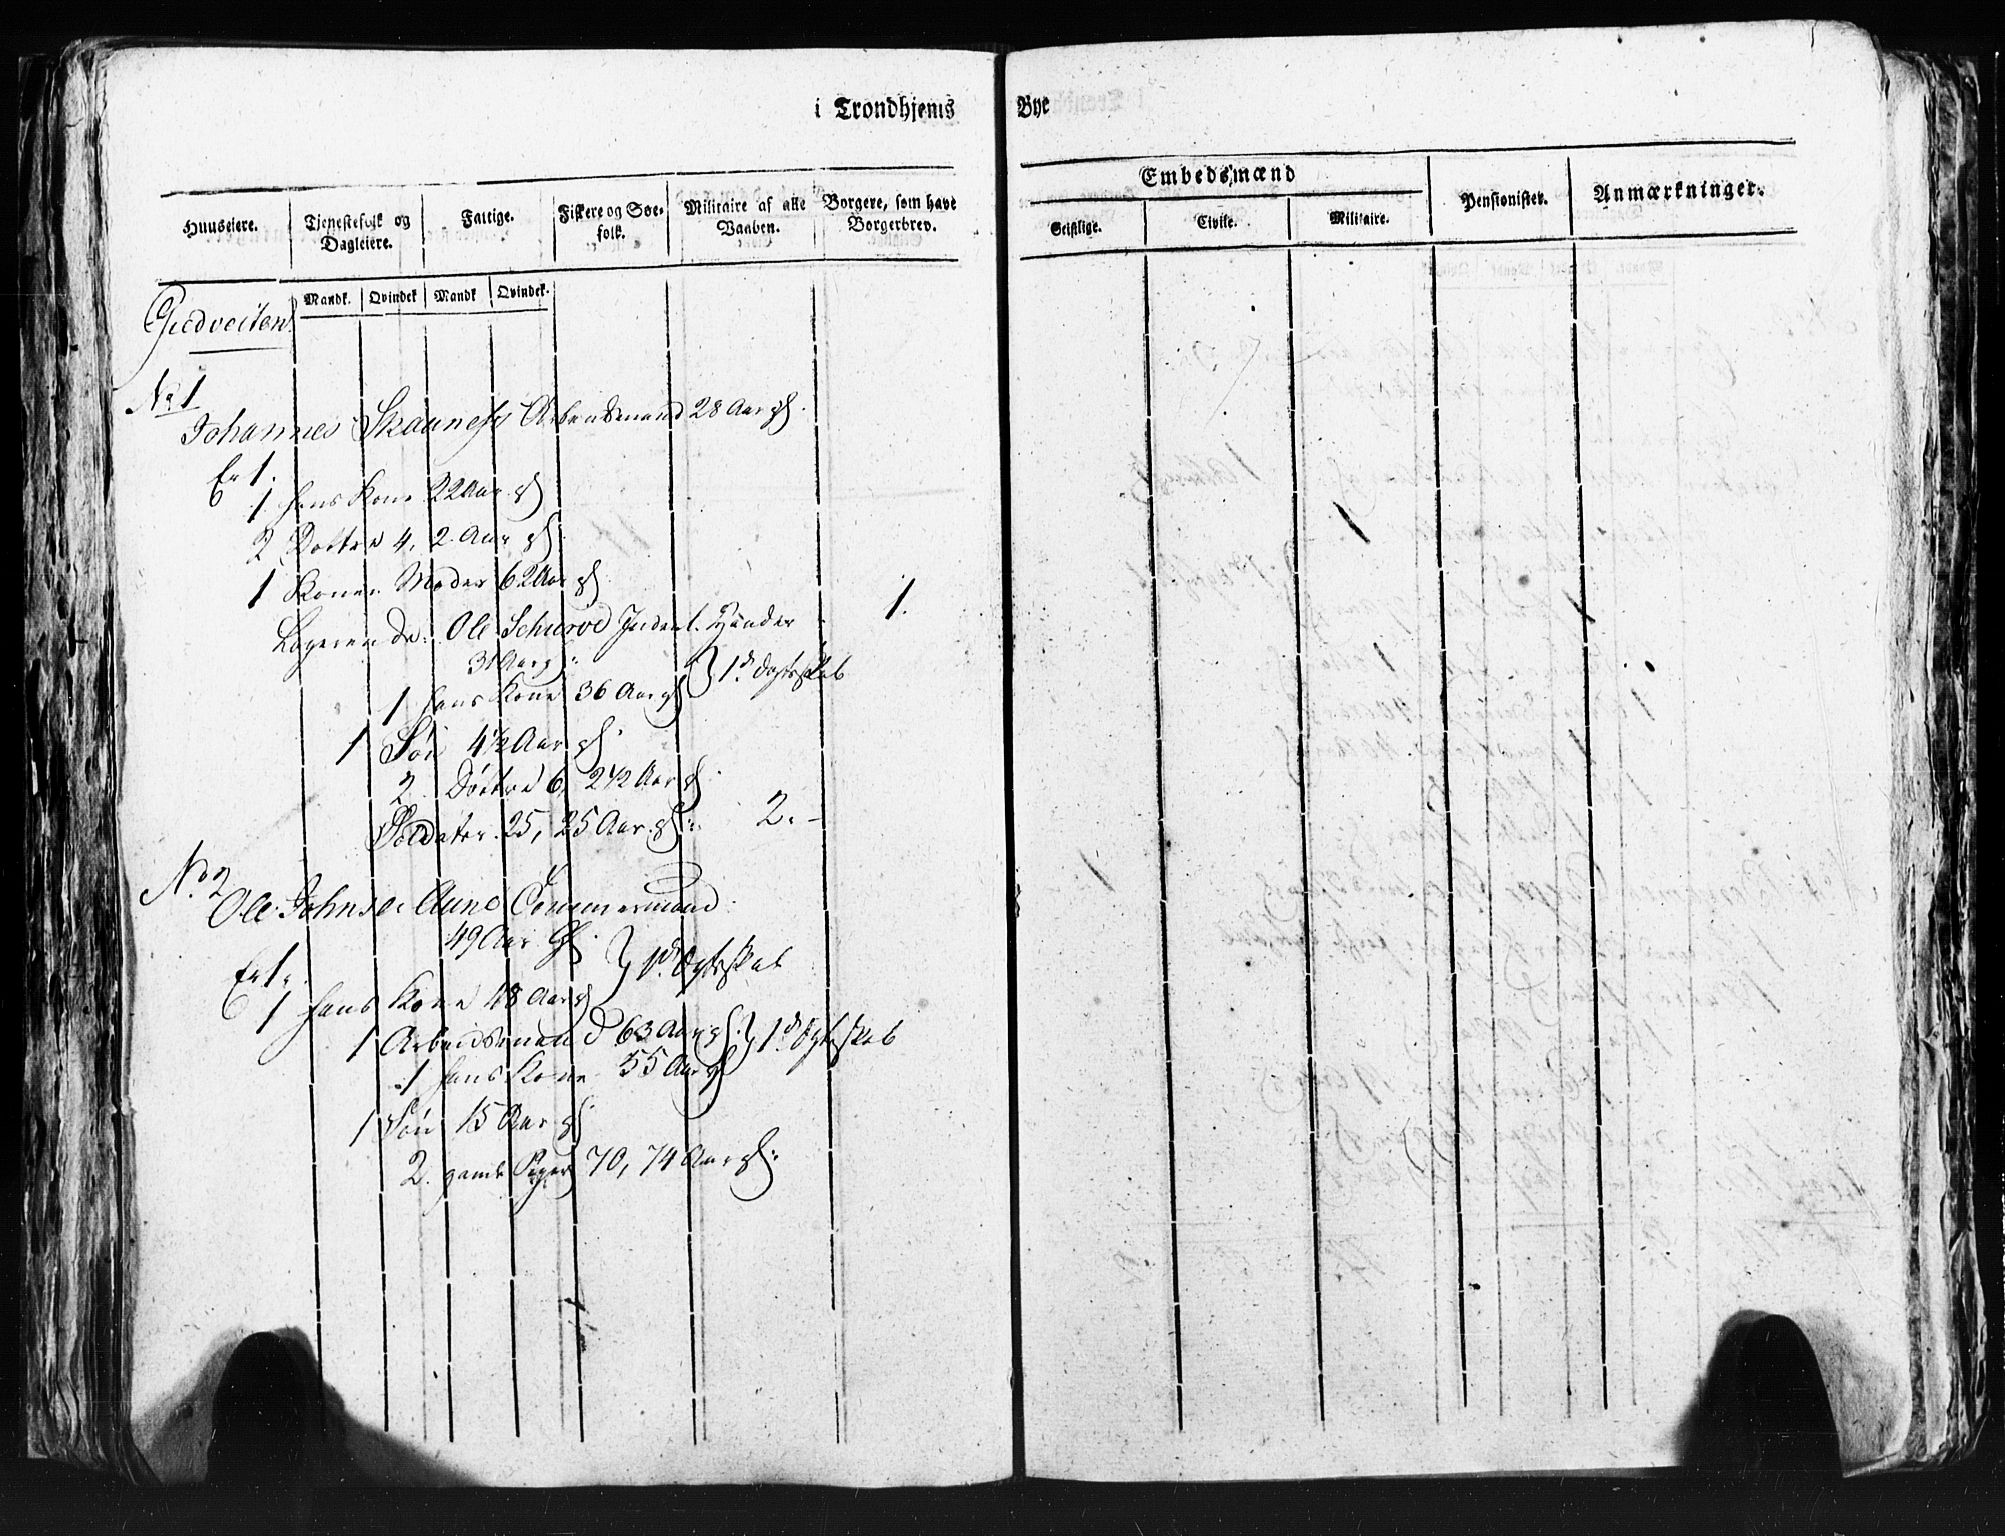 i Trondhjems Bye
Huuseiere. Tjenestefolk og Dagleiere. Fattige. Fiskere og Søefolk. Militaire af alle Vaaben. Borgere, som have Borgerbrev. Embedsmænd Pensionister. Anmærkninger.
Geistlige. Civile. Militaire.
Mandk. Qvindek Mandk Qvindek.
Giedveiten
No. 1
Johannes Skaunes Arbeidsmand 28 Aar g
Er 1.
1 hans Kone 22 Aar g
2 Dottre 4, 2 Aar g
1 Konen Moder 62 Aar g
Logerende: Ole Schierve Ident. 1.
31 Aar g
1 hans Kone 36 Aar g } 1d. Ægteskab
1 Søn 4½ Aar g
2 Döttre 6, 2½ Aar g
Soldater 25, 25 Aar g 2.
No. 2
Ole Johnsen Aune Tömmermand
49 Aar g
Er 1. } 1d. Ægteskab
1 hans Kone 48 Aar g
1 Arbeidsmand 63 Aar g } 1d. Ægteskab
1 hans Kone 55 Aar g
1 Søn 15 Aar g
2 gamle Piger 70, 74 Aar g